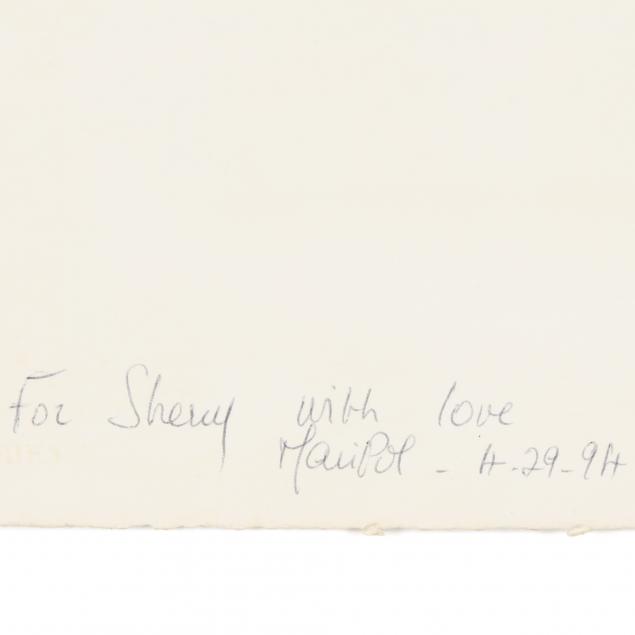 For Sherry with love
Maripol - 4-29-94